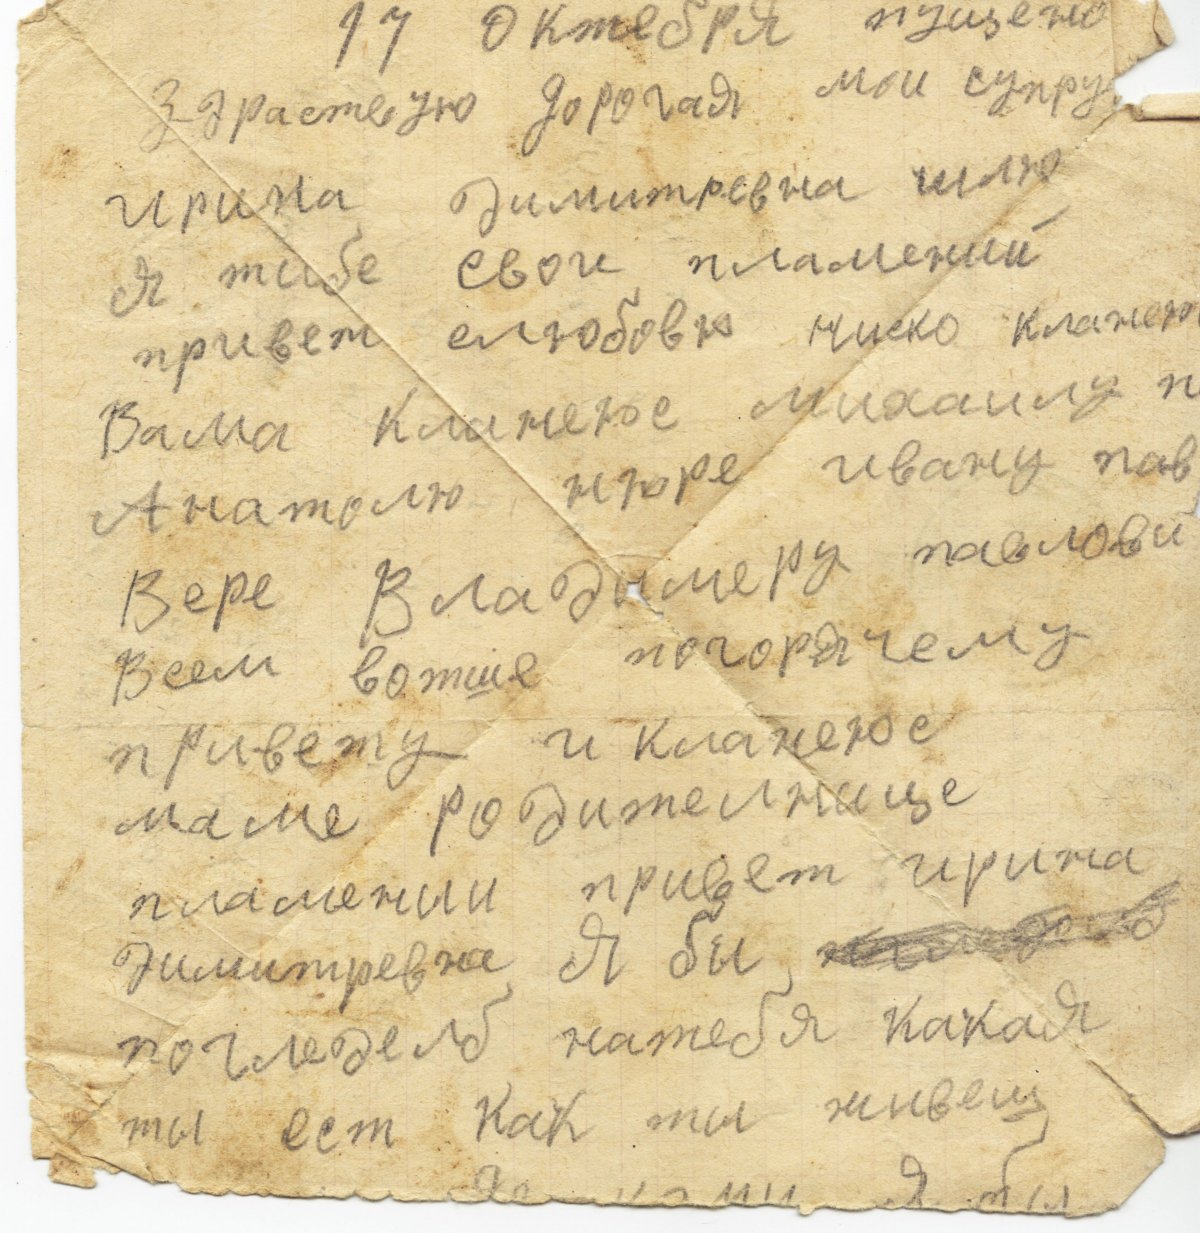 17 Октебря пущено
Здраствую дорогая мои супру
ирина Димитревна шлю
я тибе свои пламений
привет слюбовю ниско кланею
Вама кланеюс михаилу п
Анатолю нюре ивану пав
Вере Владимеру павлови
Всем вотше погорячему
привету и кланеюс
маме родителнице
пламении привет ирина
Димитревна я бы
погледелб натебя какая
ты ест как ты живеш
я бы